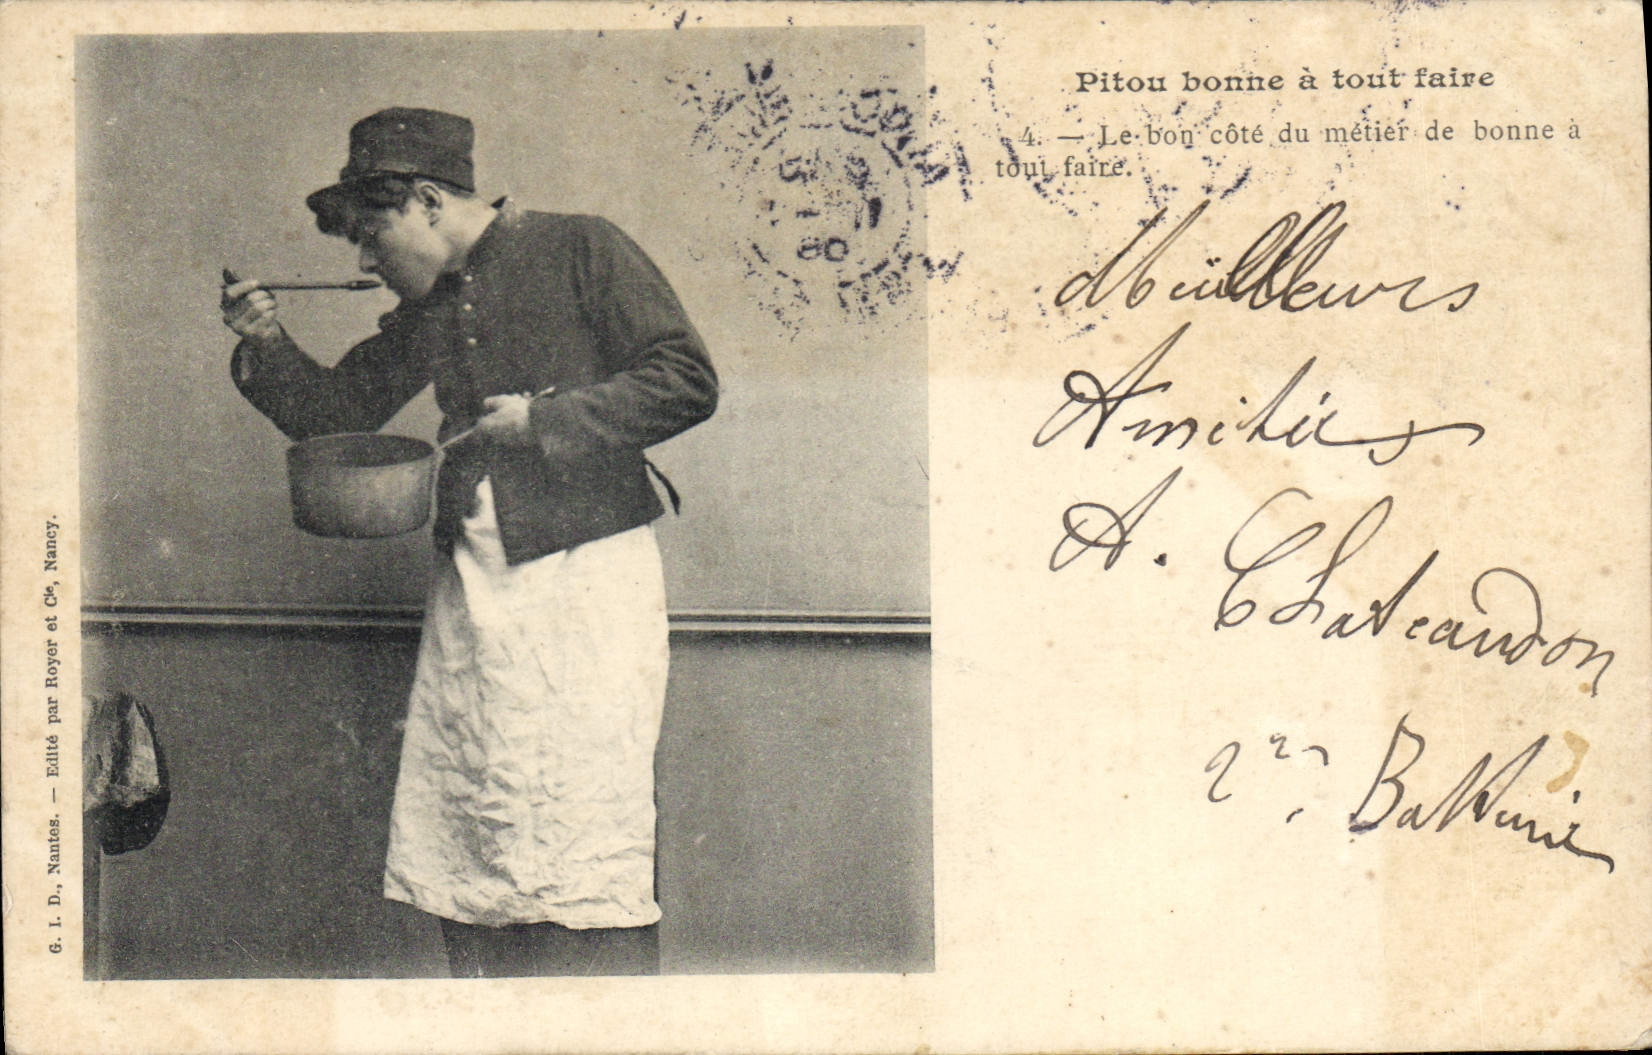 Pitou bonne à tout faire
4. — Le bon côté du métier de bonne à
tout faire.
Meilleurs
Amitiés
A. Chateaudon
2e Batterie
G. I. D., Nantes. — Edité par Royer et Cie, Nancy.